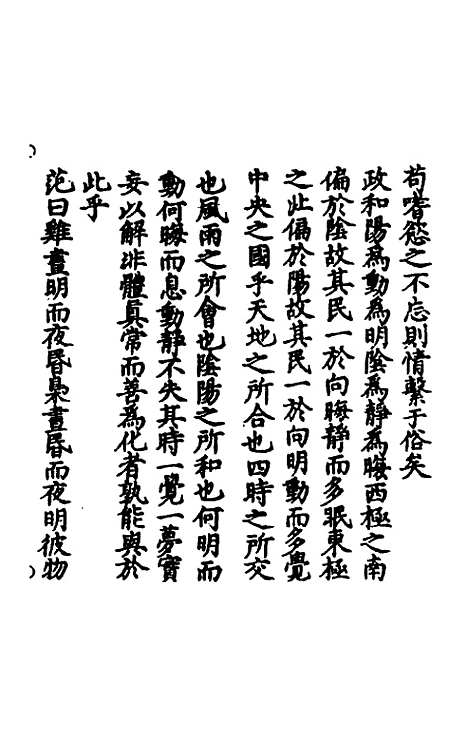 苟嗜慾之不忘則情繫于俗矣
政和陽為動為明陰為靜為晦西極之南
偏於陰故其民一於向晦靜而多眠東極
之北偏於陽故其民一於向明動而多覺
中央之國乎天地之所合也四時之所交
也風雨之所會也陰陽之所和也何明而
動何晦而息動靜不失其時一覺一夢實
妄以解非體真常而善為化者孰能與於
此乎
范曰雞晝明而夜昏梟晝昏而夜明彼物